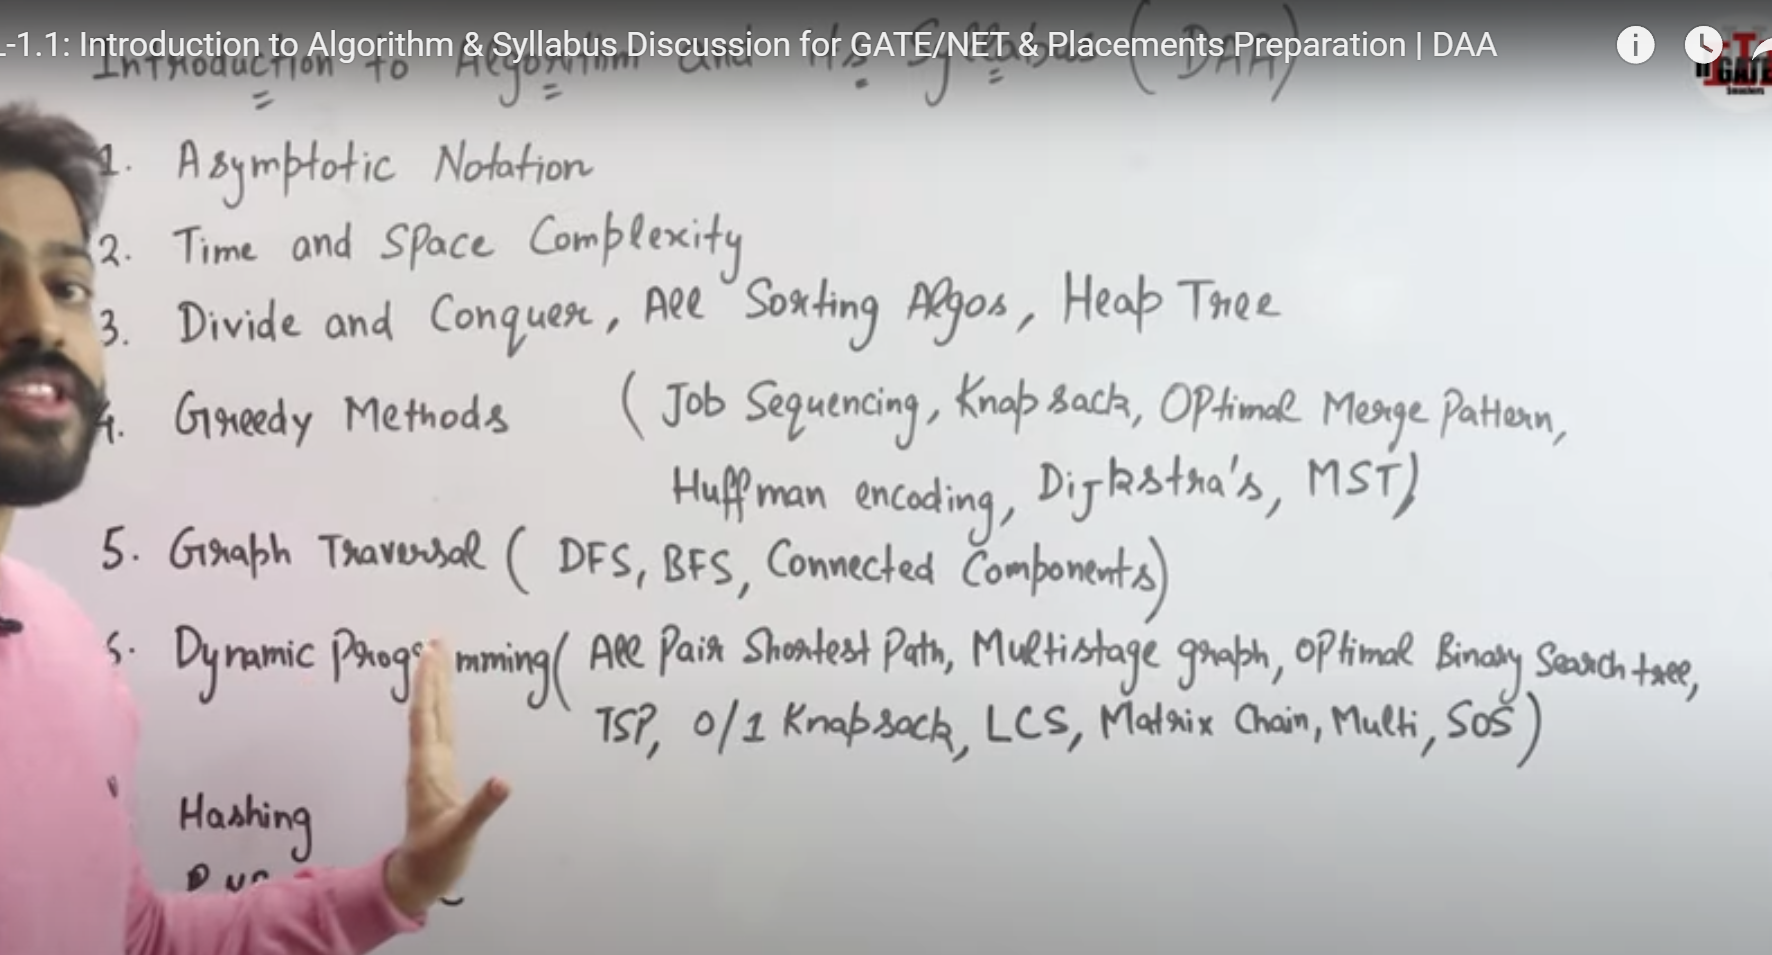 L-1.1: Introduction to Algorithm & Syllabus Discussion for GATE/NET & Placements Preparation | DAA
Introduction to Algorithm and its Syllabus (DAA)
GATE
Smashers
1. Asymptotic Notation
2. Time and Space Complexity
3. Divide and Conquer, All Sorting Algos, Heap Tree
4. Greedy Methods (Job Sequencing, Knapsack, Optimal Merge Pattern,
Huffman encoding, Dijkstra's, MST)
5. Graph Traversal (DFS, BFS, Connected Components)
6. Dynamic Programming (All Pair Shortest Path, Multistage graph, Optimal Binary Search tree,
TSP, 0/1 Knapsack, LCS, Matrix Chain, Multi, SoS)
Hashing